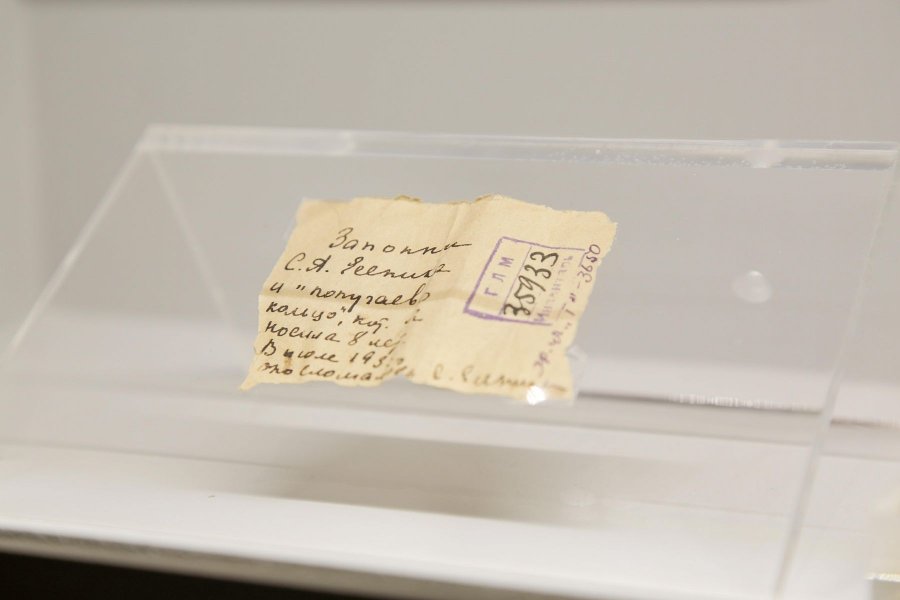 Запонки
С.А. Есенина
и "попугаево
кольцо", кот. я
носила 8 лет
В июле 193
сломалось С. Есенина
ГЛМ
35933
Инвентарь
-3650